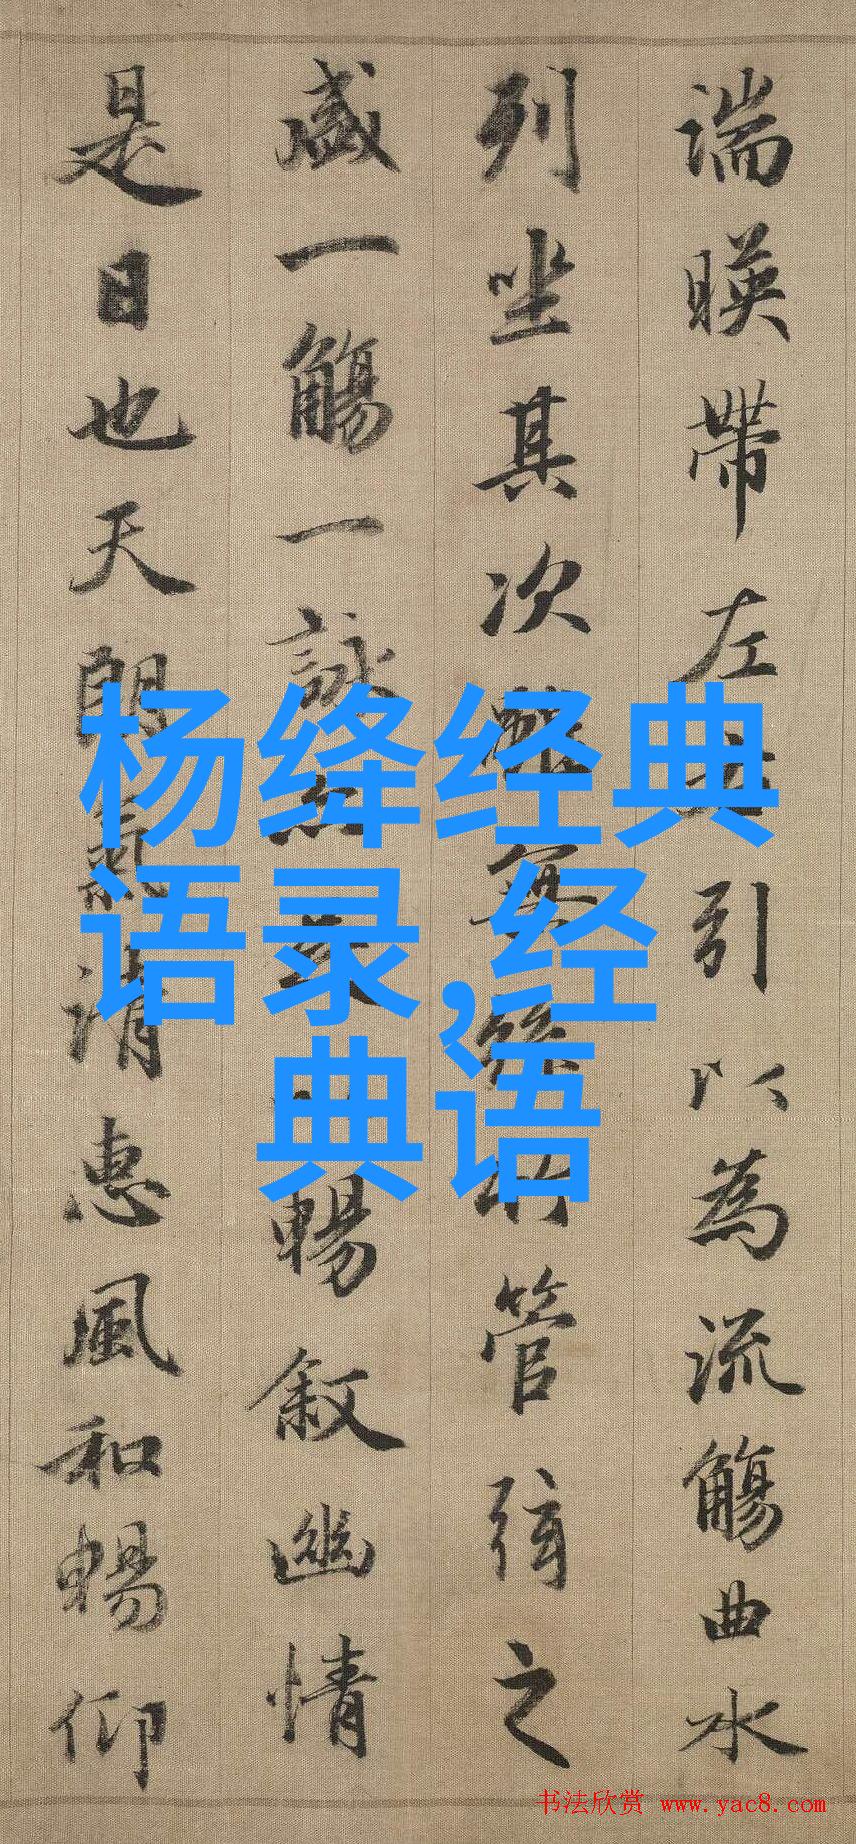 湍暎帶左右引以為流觴曲水
列坐其次雖無絲竹管弦之
盛一觴一詠亦足以暢叙幽情
是日也天朗氣清惠風和暢仰
杨绛经典
语录,经
典语
书法欣赏 www.yac8.com